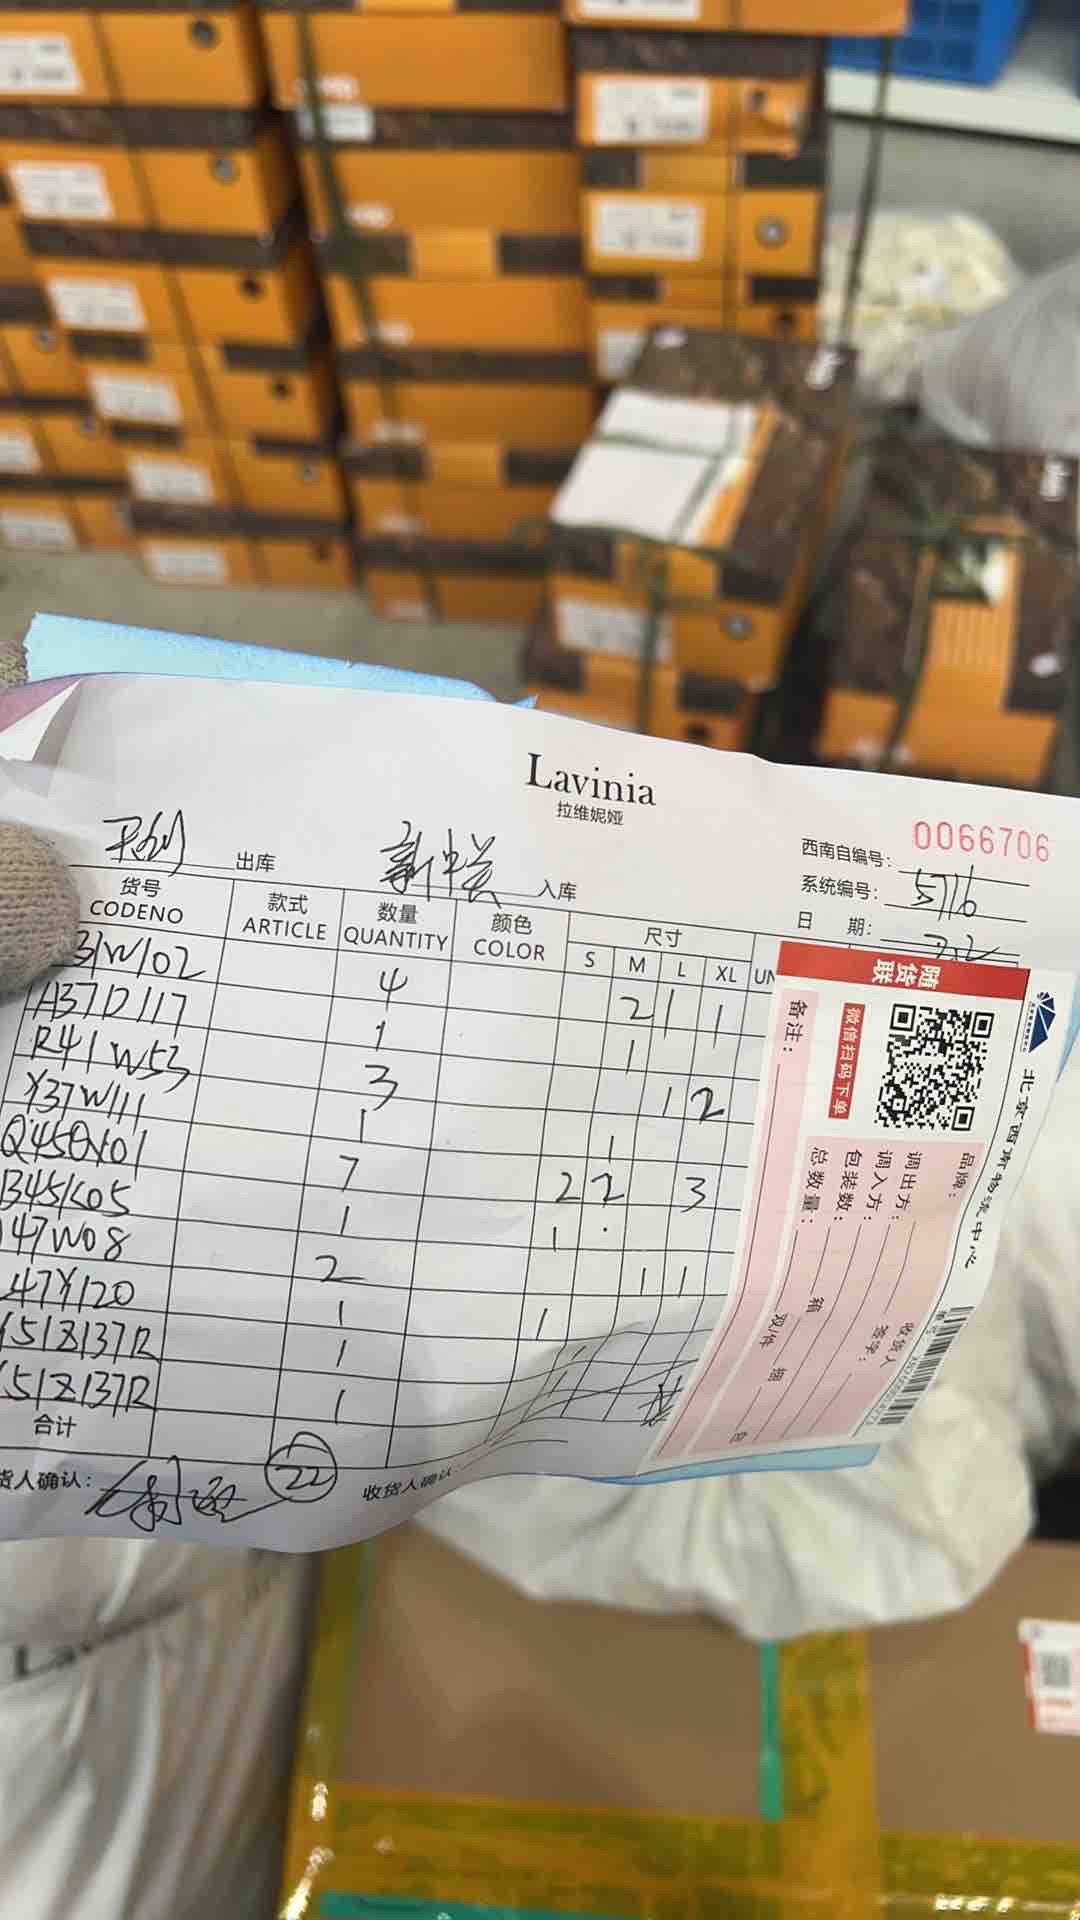 Lavinia
拉维妮娅
0066706
西南自编号：
出库
入库
系统编号： 5716
日 期： 7.2
货号 款式 数量 颜色 尺寸
CODENO ARTICLE QUANTITY COLOR S M L XL UN
31W102 4 2 1 1
A37D117 1 1
R41W53 3 1 2
Y37W111 1 1
Q45QY01 7 2 2 3
B45K05 1 1
47W08 2 1 1
47Y120 1 1
51Z137R 1 1
51Z137R 1
合计
22
货人确认：
收货人确认：
随货联
微信扫码下单
备注：
北京西南物流中心
品牌：
调出方：
调入方： 收货人
包装数： 箱 签字：
总数量： 双/件 捆 包